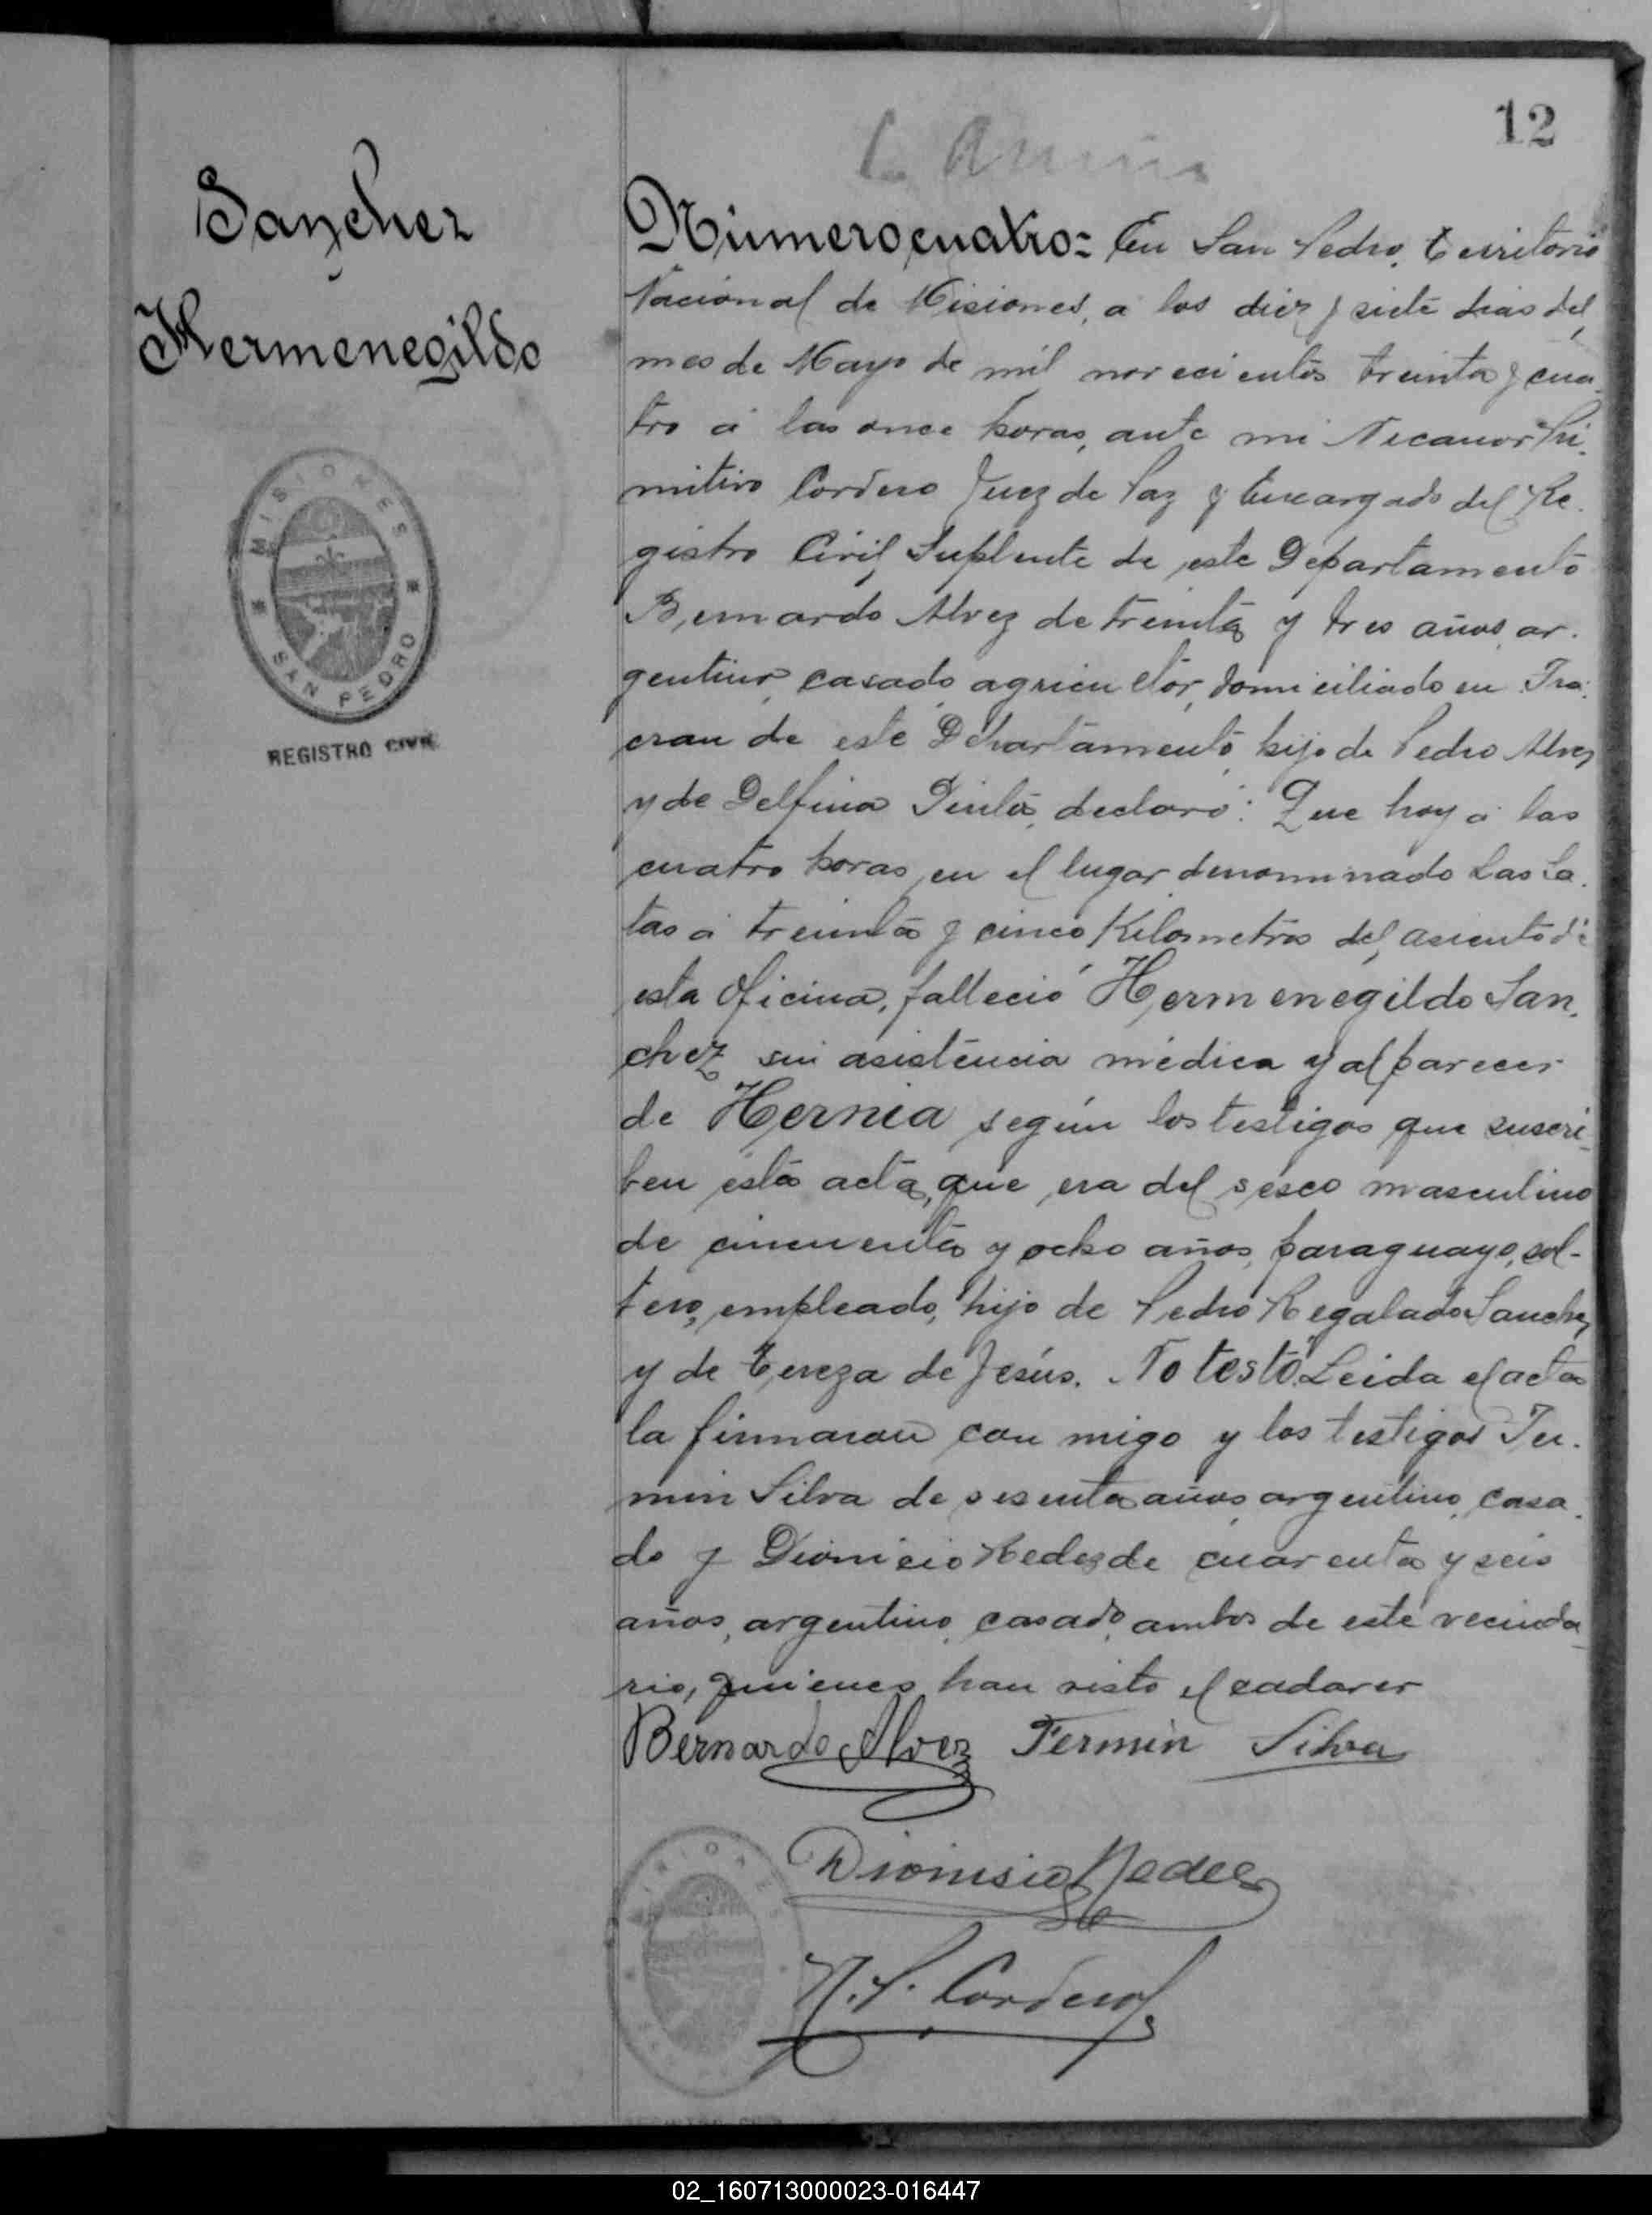 12
Sanchez
Hermenegildo
MISIONES
SAN PEDRO
REGISTRO CIVIL
Número cuatro = En San Pedro, Territorio
Nacional de Misiones, a los diez y siete dias del
mes de Mayo de mil novecientos treinta y cua-
tro á las once horas, ante mi Nicanor Pri-
mitivo Cordero Juez de Paz y Encargado del Re-
gistro Civil Suplente de este Departamento
Bernardo Alvez de treinta y tres años, ar-
gentino, casado, agricultor, domiciliado en Fra-
cran de este Departamento, hijo de Pedro Alvez
y de Delfina Pinto, declaró: Que hoy á las
cuatro horas, en el lugar denominado Las La-
tas á treinta y cinco Kilometros del asiento de
esta Oficina, falleció Hermenegildo San-
chez sin asistencia médica y al parecer
de Hernia según los testigos que suscri-
ben esta acta, que era del sesco masculino
de cincuenta y ocho años, paraguayo, sol-
tero, empleado, hijo de Pedro Regalado Sanchez
y de Tereza de Jesús. No testó. Leida el acta
la firmaron con migo y los testigos Fer-
min Silva de sesenta años, argentino, casa-
do y Dionicio de cuarenta y seis
años, argentino, casado, ambos de este vecinda-
rio, quienes han visto el cadaver
Bernardo Alvez Fermin Silva
Dionisio
N. P. Cordero
02_160713000023-016447